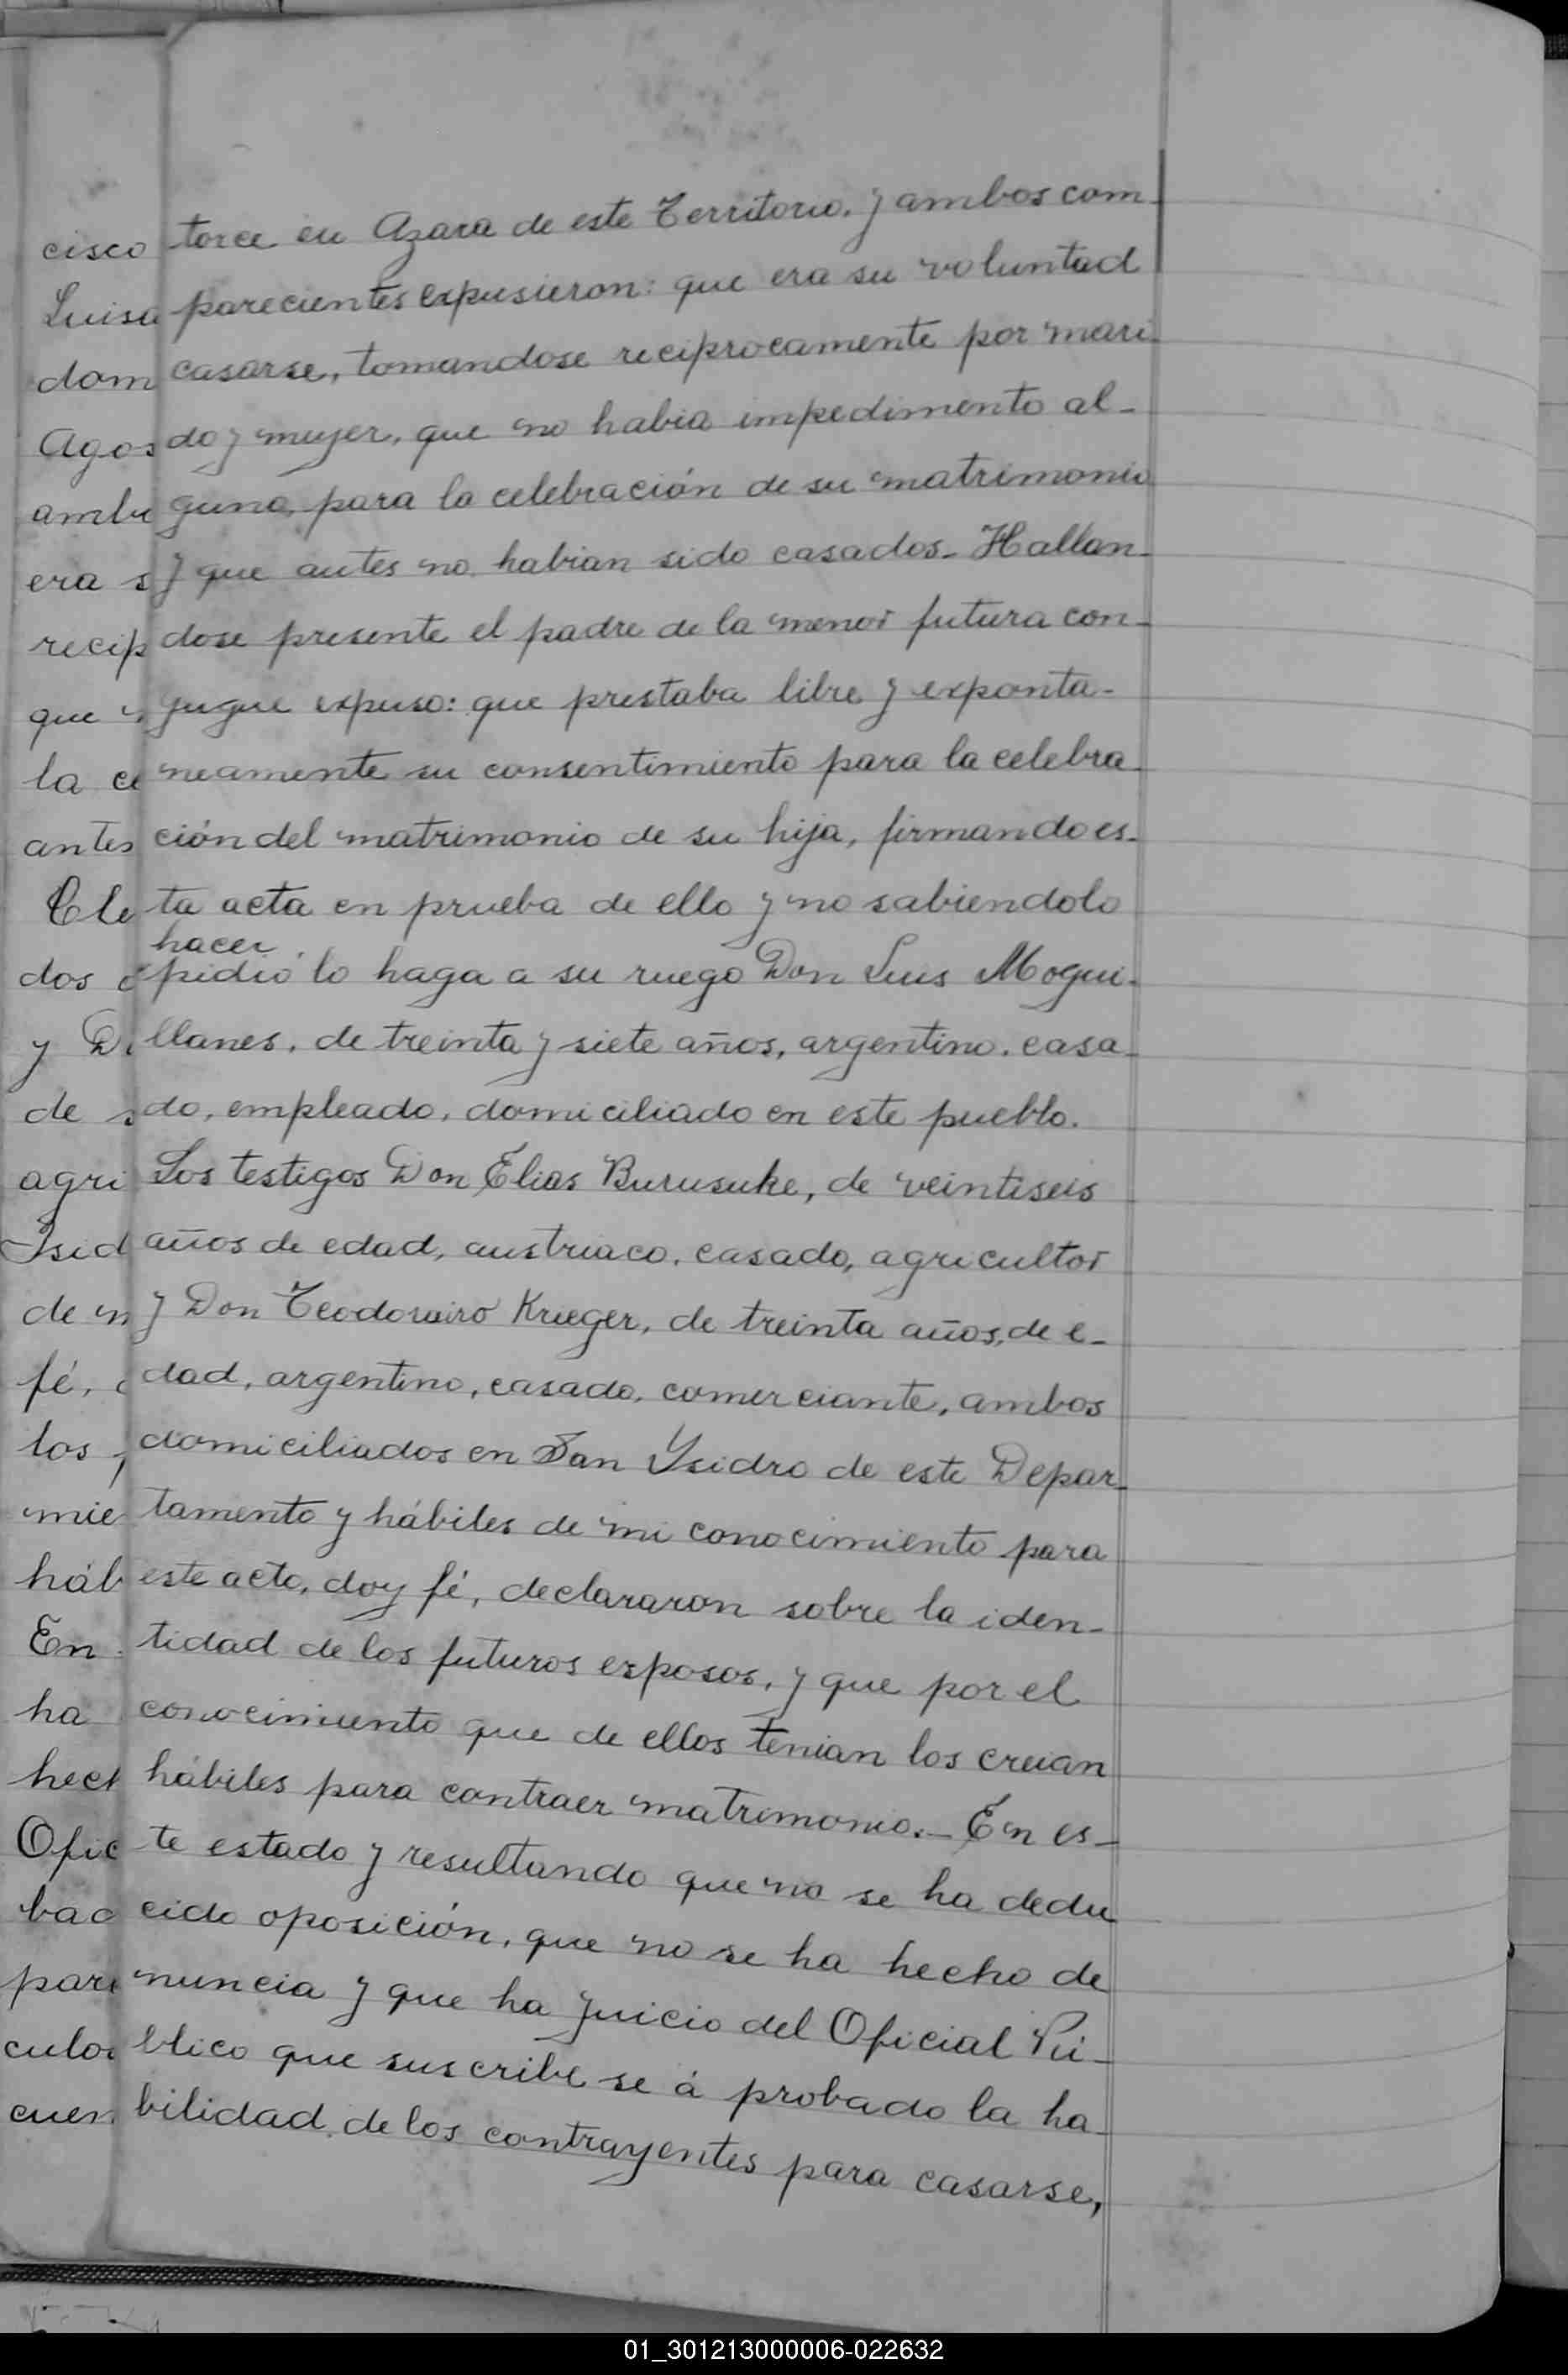 torce en Azara de este Territorio. y ambos com-
parecientes expusieron: que era su voluntad
casarse, tomandose reciprocamente por mari-
do y mujer, que no habia impedimento al-
guno, para la celebración de su matrimonio
y que antes no habian sido casados_ Hallan-
dose presente el padre de la menor futura con-
yugue expuso: que prestaba libre y exponta-
neamente su consentimiento para la celebra-
ción del matrimonio de su hija, firmando es-
ta acta en prueba de ello y no sabiendolo
hacer
pidió lo haga a su ruego Don Luis Mogui-
llanes, de treinta y siete años, argentino, casa-
do, empleado, domiciliado en este pueblo.
Los testigos Don Elias Burusuke, de veintiseis
años de edad, austriaco, casado, agricultor
y Don Teodomiro Krieger, de treinta años, de e-
dad, argentino, casado, comerciante, ambos
domiciliados en San Ysidro de este Depar-
tamento y hábiles de mi conocimiento para
este acto, doy fé, declararon sobre la iden-
tidad de los futuros exposos, y que por el
conocimiento que de ellos tenian los creian
hábiles para contraer matrimonio._ En es-
te estado y resultando que no se ha dedu
cido oposición, que no se ha hecho de
nuncia y que ha juicio del Oficial Pú-
blico que suscribe se á probado la ha-
bilidad de los contrayentes para casarse,
cisco
Luisa
dom
Agos
amb
era s
recip
que
la ce
antes
Cle
dos
y D
de s
agri
Isid
de m
fé,
los
mie
háb
En
ha
hech
Ofic
bad
pare
culo
cuen
01_301213000006-022632